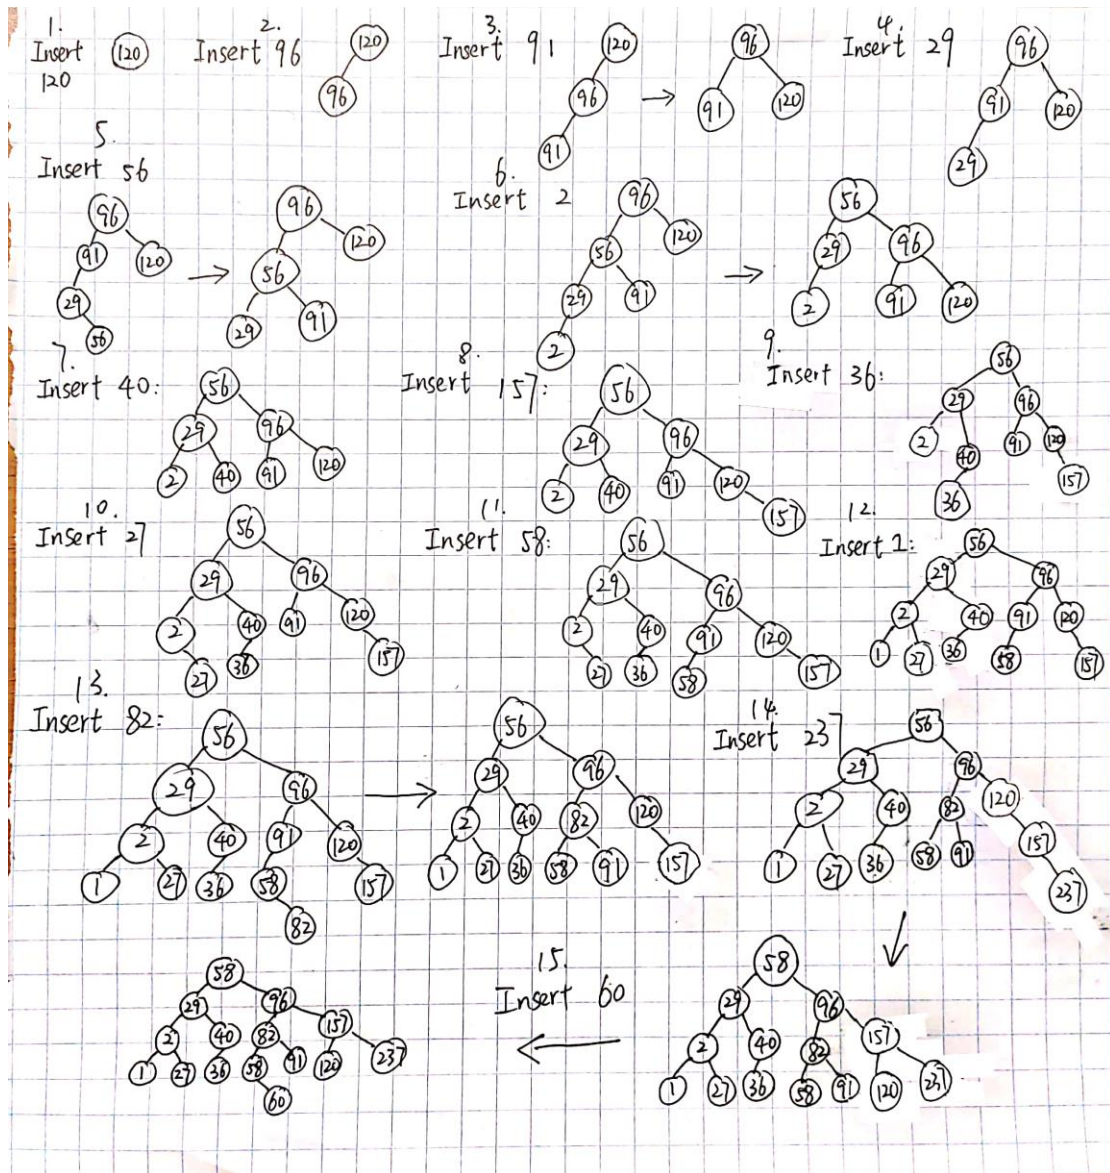 1.
Insert
120
120
2.
Insert 96
120
96
3.
Insert 91
120
96
91
→
96
91 120
4.
Insert 29
96
91 120
29
5.
Insert 56
96
91 120
29
56
→
96
120
56
29 91
6.
Insert 2
96
120
56
29 91
2
→
56
29 96
2 91 120
7.
Insert 40:
56
29 96
2 40 91 120
8.
Insert 157:
56
29 96
2 40 91 120
157
9.
Insert 36:
56
29 96
2 40 91 120
36 157
10.
Insert 27
56
29 96
2 40 91 120
27 36 157
11.
Insert 58:
56
29 96
2 40 91 120
27 36 58 157
12.
Insert 1:
56
29 96
2 40 91 120
1 27 36 58 157
13.
Insert 82:
56
29 96
2 40 91 120
1 27 36 58 157
82
→
56
29 96
2 40 82 120
1 27 36 58 91 157
14.
Insert 237
56
29 96
2 40 82 120
1 27 36 58 91 157
237
↓
58
29 96
2 40 82 157
1 27 36 58 91 120 237
15.
Insert 60
←
58
29 96
2 40 82 157
1 27 36 58 91 120 237
60